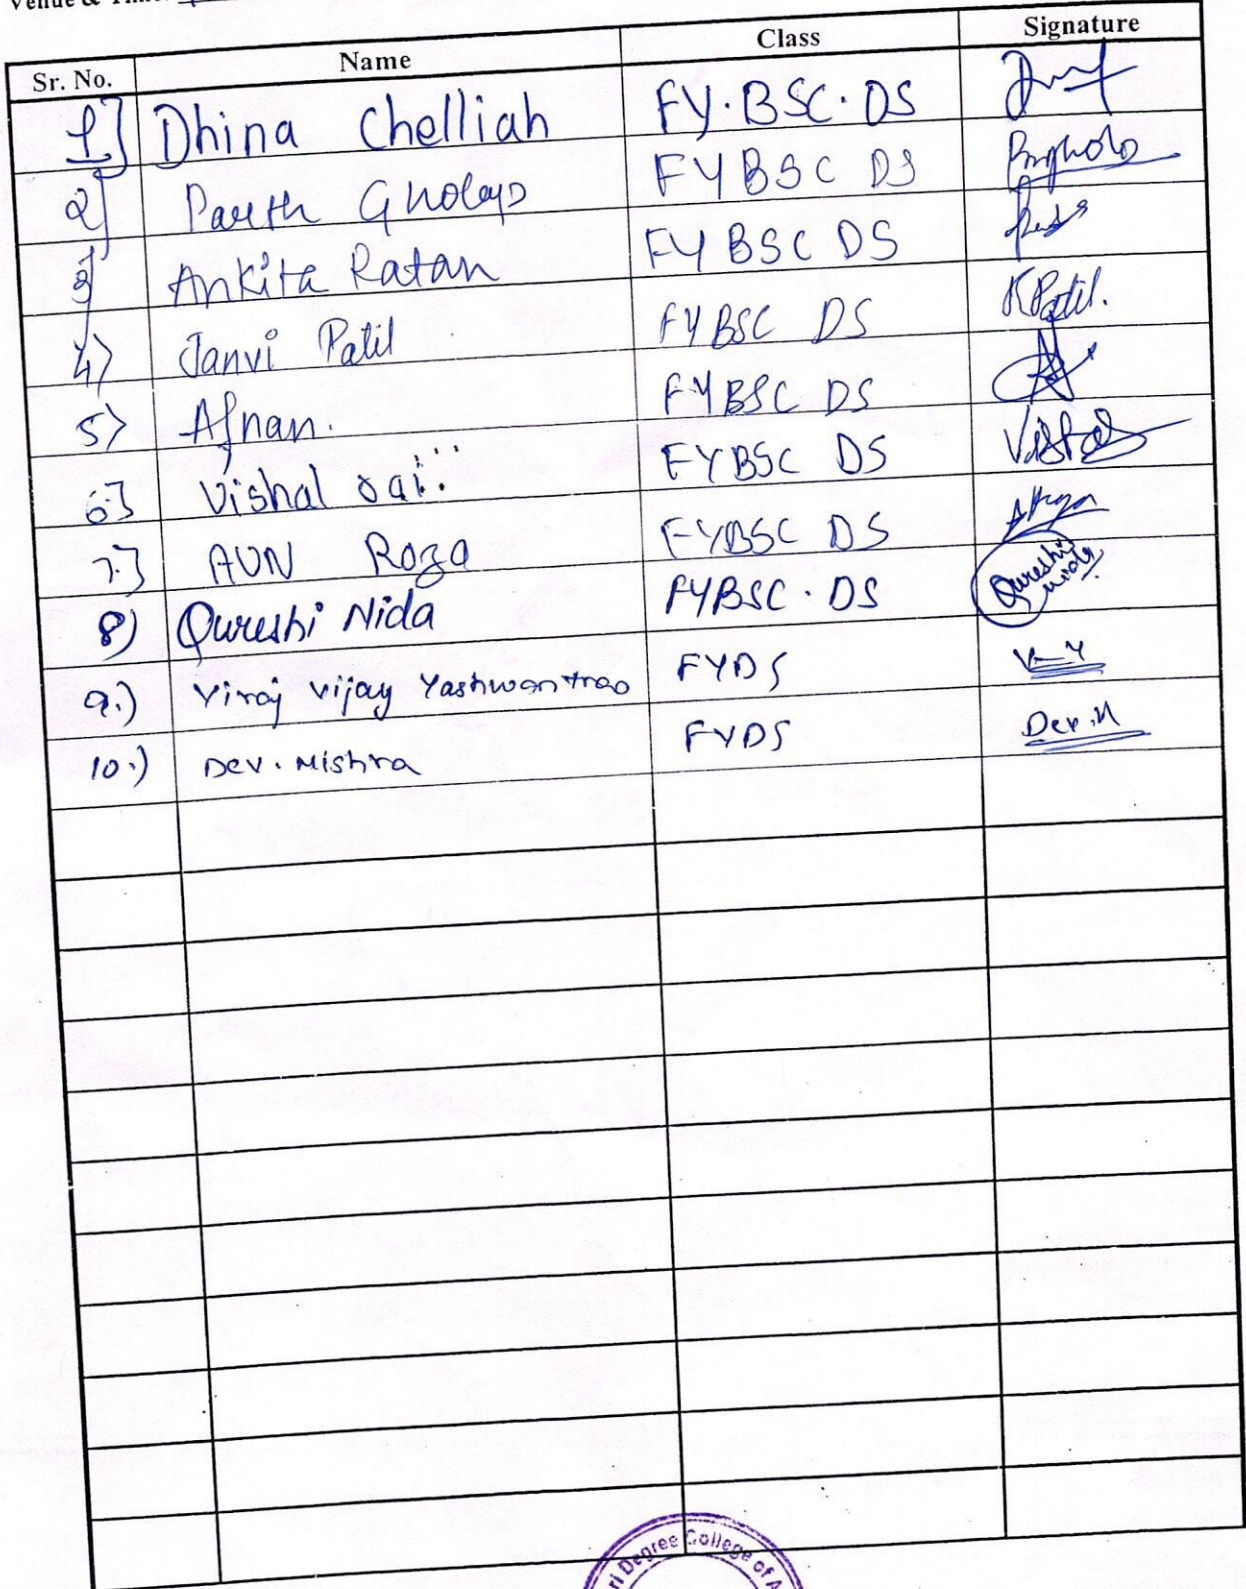 Venue &
Sr. No. Name Class Signature
1] Dhina Chelliah FY.BSC.DS
2] Parth Gholap FYBSC DS
3] Ankita Ratan FYBSC DS
4) Janvi Patil FYBSC DS KPatil.
5) Afnan. FYBSC DS
6] Vishal rai. FYBSC DS Vishal
7.] AUN Roza FYBSC DS
8) Qureshi Nida FYBSC. DS Qureshi
9.) Viraj Vijay Yashwantrao FYDS
10.) Dev. Mishra FYDS Dev.M
Degree College of